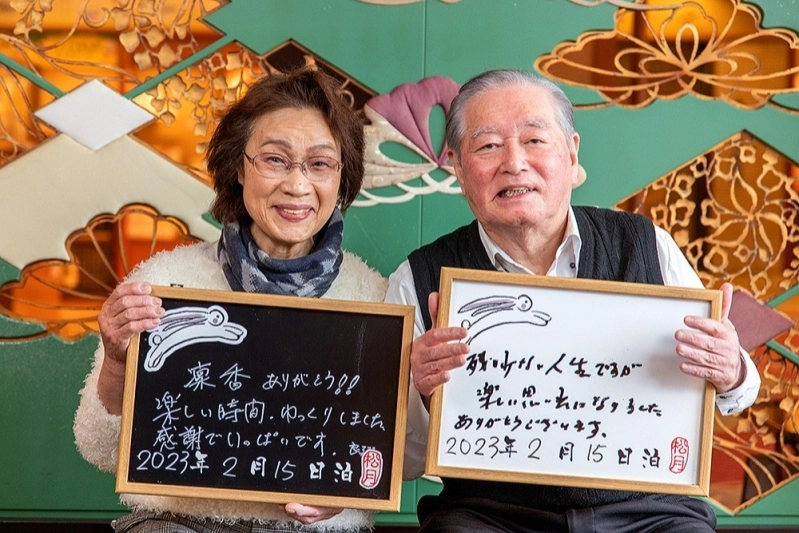 凛香 ありがとう!!
楽しい時間、ゆっくりしました
感謝でいっぱいです。
2023年 2月 15日 泊
松月
残り少ない人生ですが
楽しい思い出になりました
ありがとうございます。
2023年 2月 15日 泊
松月